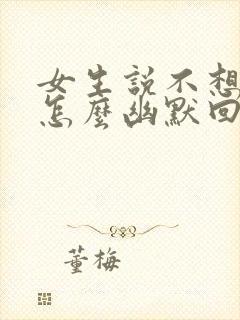 女生説不想
怎麼幽默回
董梅